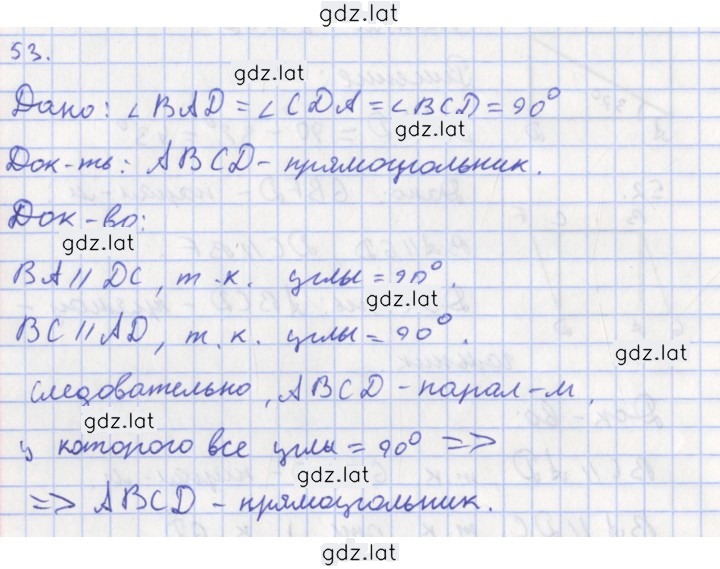 gdz.lat
53.
gdz.lat
Дано: ∠BAD = ∠CDA = ∠BCD = 90°
gdz.lat
Док-ть: ABCD - прямоугольник.
Док-во:
gdz.lat
BA // DC, т.к. углы = 90°.
gdz.lat
BC // AD, т.к. углы = 90°.
gdz.lat
следовательно, ABCD - парал-м,
gdz.lat
у которого все углы = 90° =>
gdz.lat
=> ABCD - прямоугольник.
gdz.lat